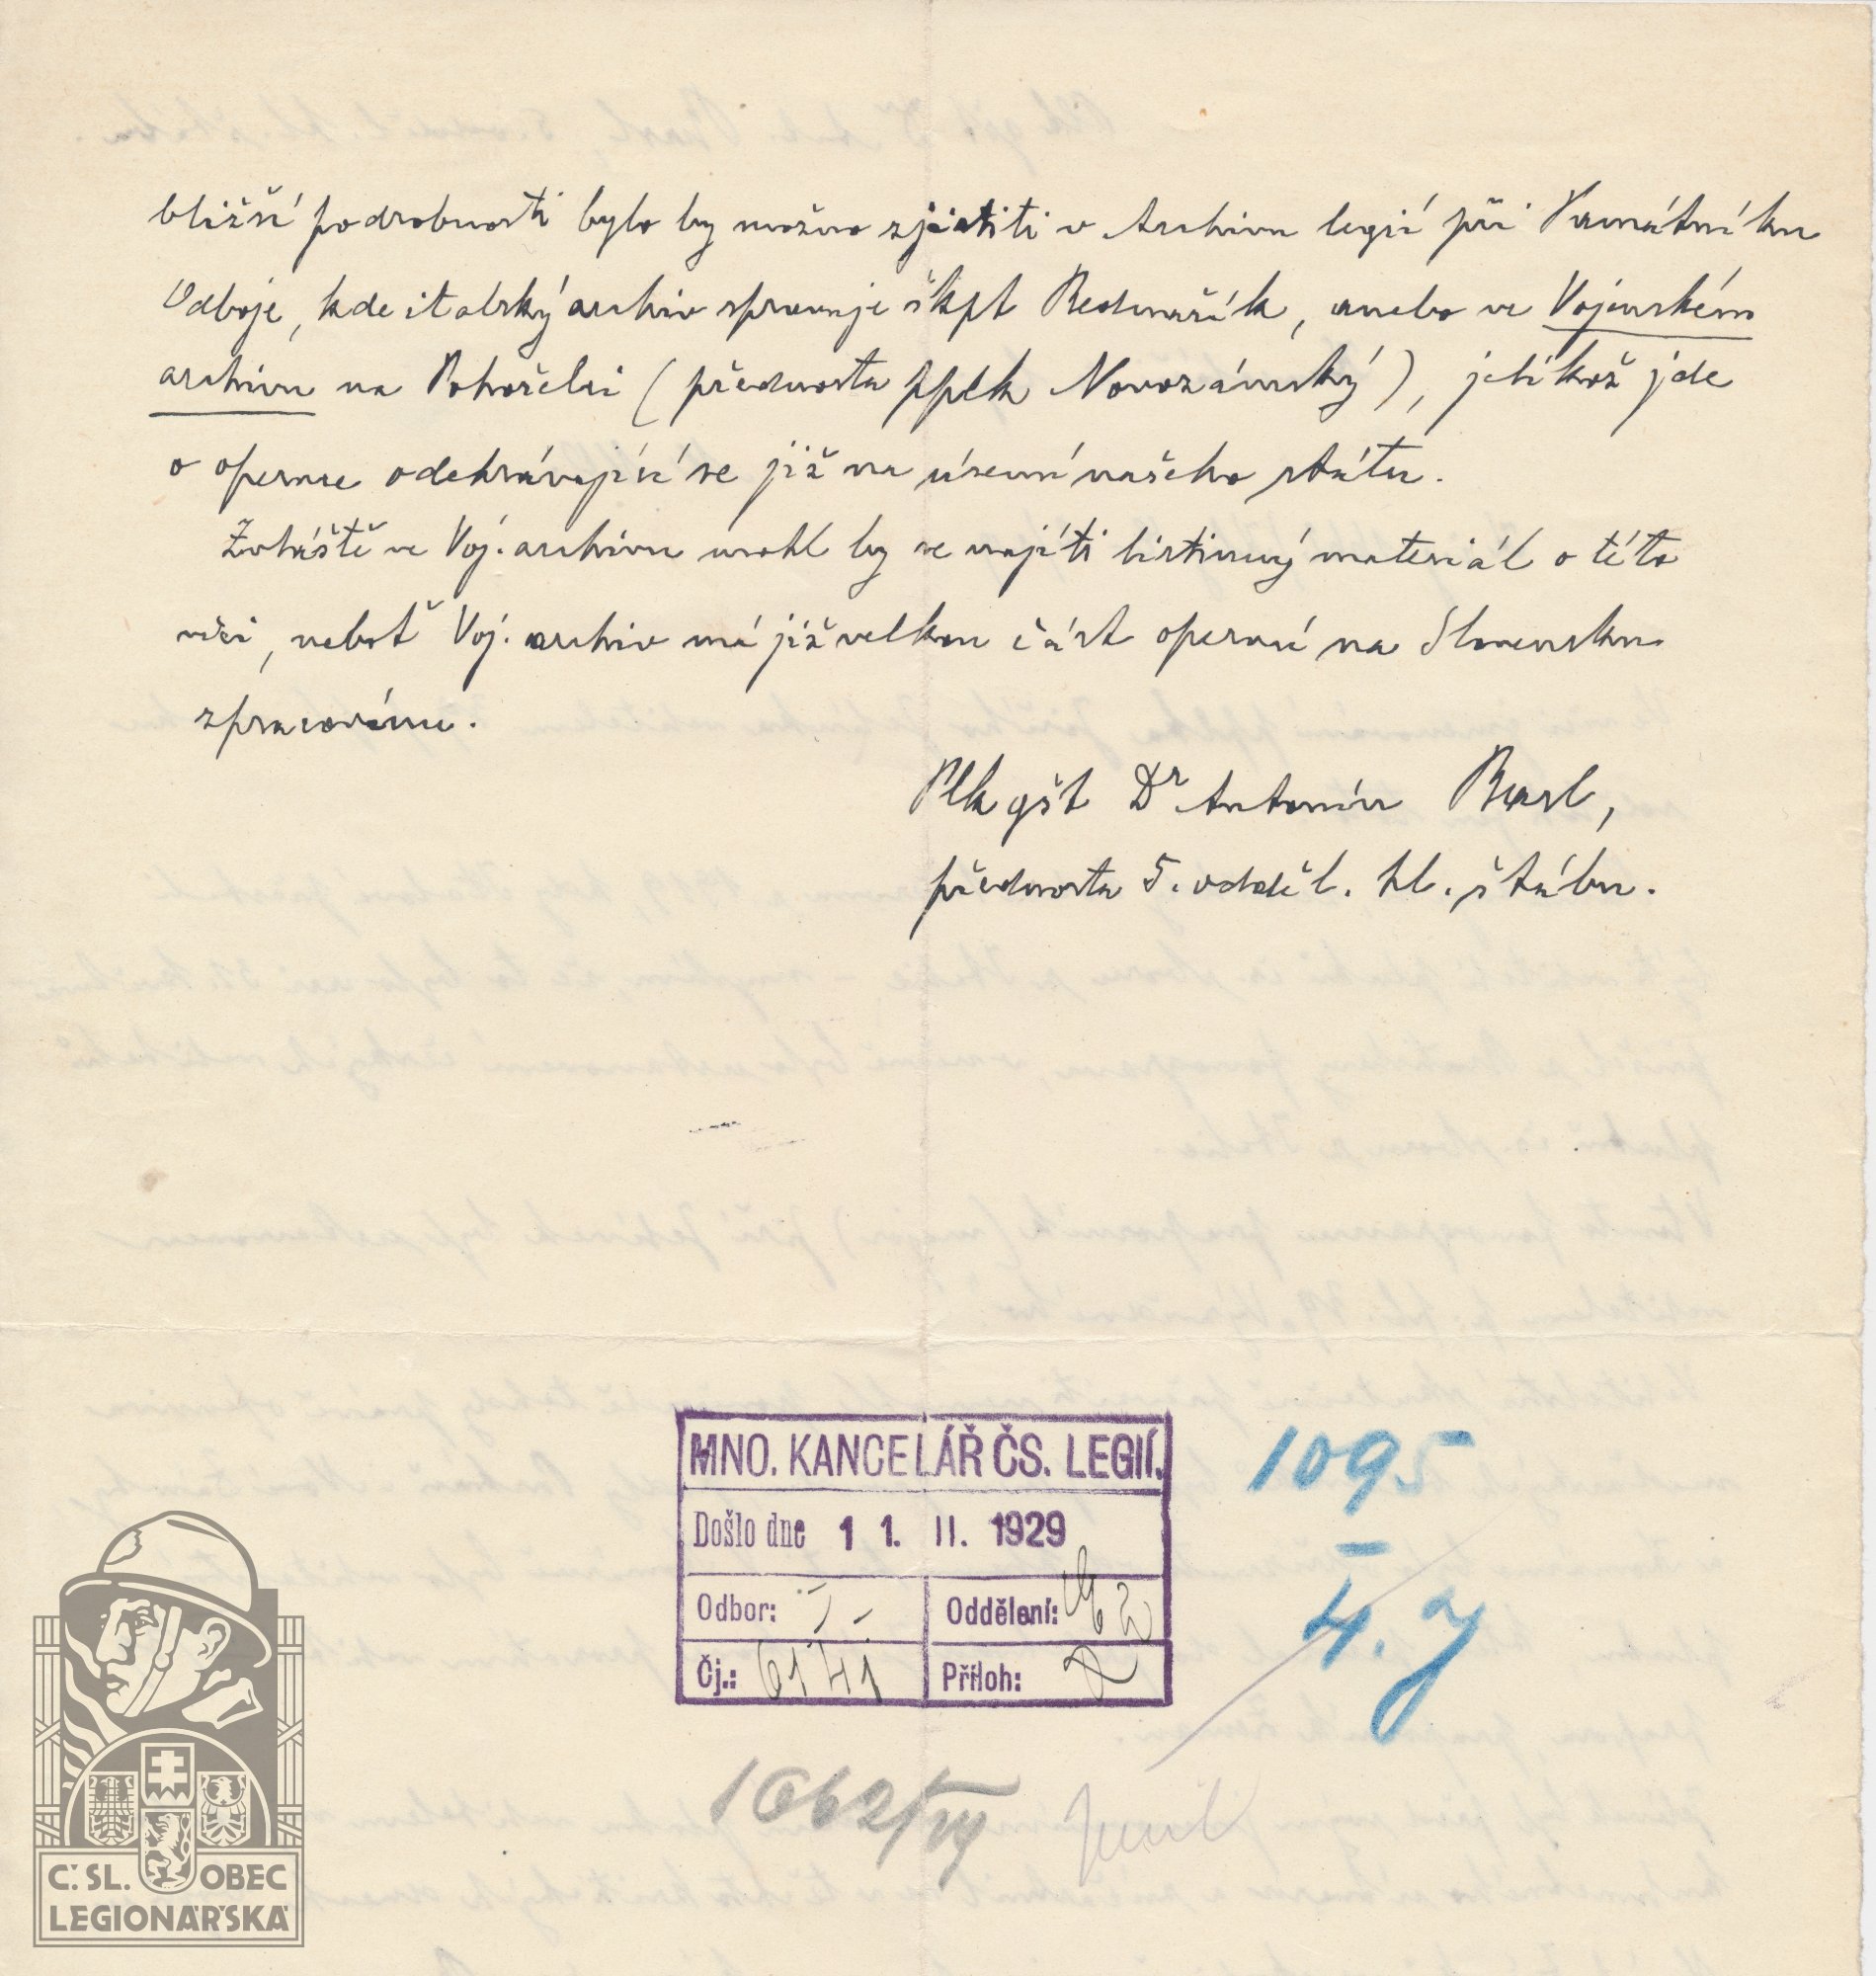 bližší podrobnosti bylo by možno zjistiti v Archivu legií při Památníku
Odboje, kde italský archiv spravuje škpt Bednařík, anebo ve Vojenském
archivu na Pohořelci (přednosta pplk Novozámský), jelikož jde
o operace odehrávající se již na území našeho státu.
Zvláště ve Voj. archivu mohl by se najíti listinný materiál o této
věci, neboť Voj. archiv má již velkou část operací na Slovensku
zpracovánu.
Plk gšt Dr Antonín Basl,
přednosta 5. odděl. hl. štábu.
MNO. KANCELÁŘ ČS. LEGIÍ.
Došlo dne 11. II. 1929
Odbor: Oddělení:
Čj.: 6141 Příloh: 2
1095
I
4. 
1662/
Č.SL. OBEC
LEGIONÁŘSKÁ